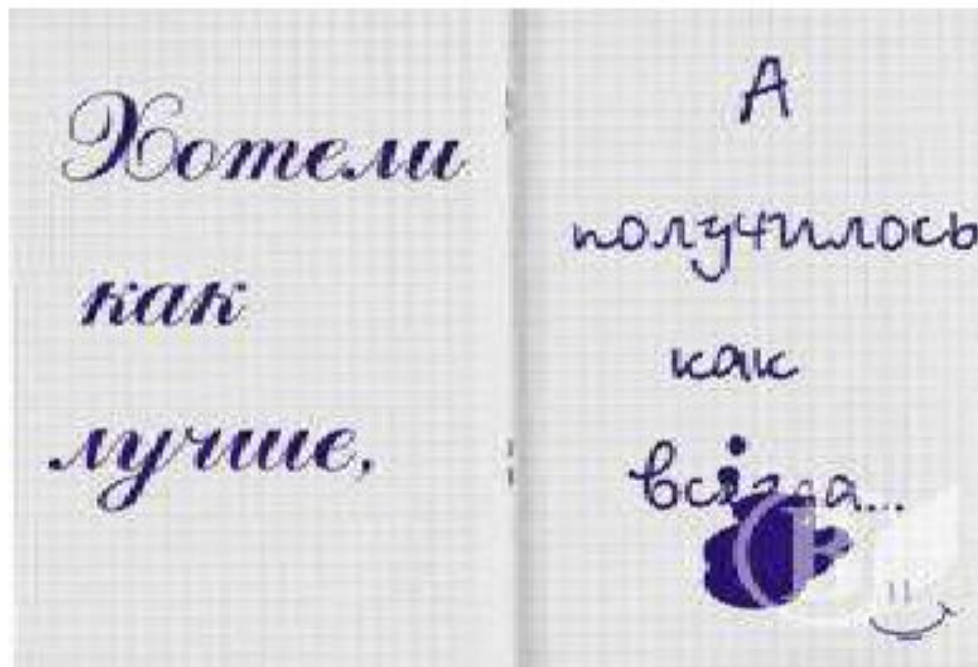 Хотели
как
лучше,
А
получилось
как
всегда...